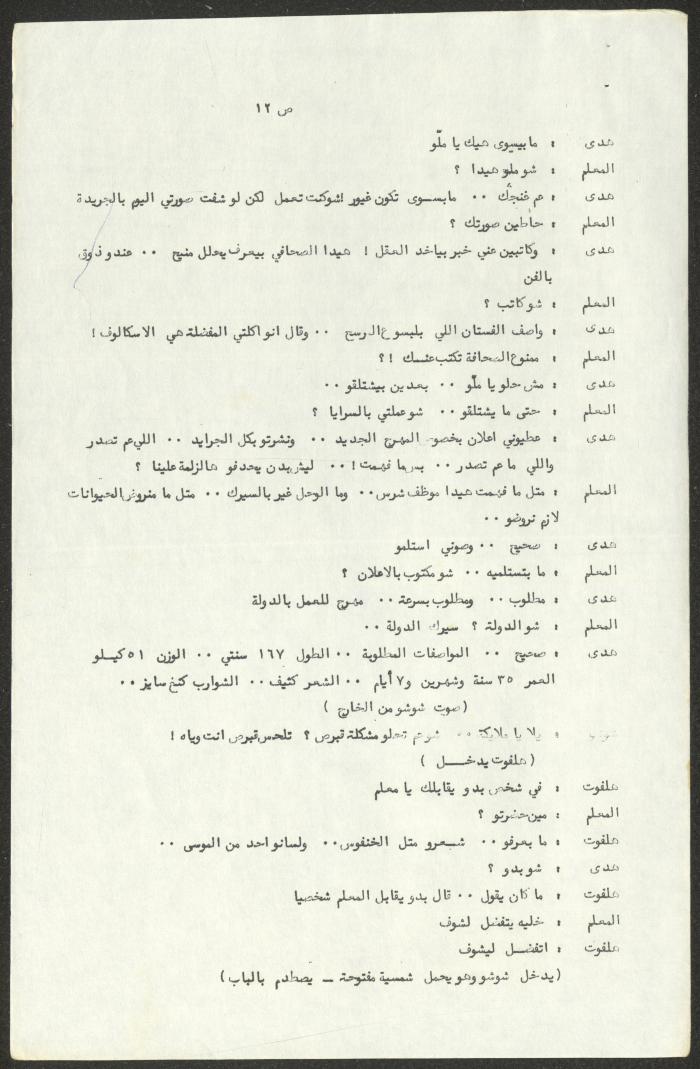 ص ١٢
هدى : مابيسوى هيك يا ملّو
المعلم : شو ملو هيدا ؟
هدى : عم غنجك ٠٠ مابسوى تكون غيور اشوكنت تعمل لكن لو شفت صورتي اليوم بالجريدة
المعلم : حاطين صورتك ؟
هدى : وكاتبين عني خبر بياخد العقل ! هيدا الصحافي بيعرف يحلل منيح ٠٠ عندو ذوق
بالفن
المعلم : شو كاتب ؟
هدى : واصف الفستان اللي بلبسو ع المرسح ٠٠ وقال انو اكلتي المفضلة هي الاسكالوف !
المعلم : ممنوع الصحافة تكتب عنك !؟
هدى : مش حلو يا ملّو ٠٠ بعدين بيشتلقو ٠٠
المعلم : حتى ما يشتلقو ٠٠ شو عملتي بالسرايا ؟
هدى : عطيوني اعلان بخصوص المهرج الجديد ٠٠ ونشرتو بكل الجرايد ٠٠ اللي عم تصدر
واللي ما عم تصدر ٠٠ بس ما فهمت ! ٠٠ ليش بدن يحدفو هالزلمة علينا ؟
المعلم : متل ما فهمت هيدا موظف شرس ٠٠ وما الوحل غير بالسيرك ٠٠ متل ما منروض الحيوانات
لازم نروضو ٠٠
هدى : صحيح ٠٠ وصوني استلمو
المعلم : ما بتستلميه ٠٠ شو مكتوب بالاعلان ؟
هدى : مطلوب ٠٠ ومطلوب بسرعة ٠٠ مهرج للعمل بالدولة
المعلم : شو الدولة ؟ سيرك الدولة ٠٠
هدى : صحيح ٠٠ المواصفات المطلوبة ٠٠ الطول ١٦٧ سنتي ٠٠ الوزن ٥١ كيلو
العمر ٣٥ سنة وشهرين و٧ أيام ٠٠ الشعر كثيف ٠٠ الشوارب كنغ سايز ٠٠
( صوت شوشو من الخارج )
: يلا يا ملايكة ٠٠ شو عم تحلو مشكلة قبرص ؟ تلحس قبرص انت وياه !
( هلفوت يدخل )
هلفوت : في شخص بدو يقابلك يا معلم
المعلم : مين حضرتو ؟
هلفوت : ما بعرفو ٠٠ شعرو متل الخنفوس ٠٠ ولسانو احد من الموسى ٠٠
هدى : شو بدو ؟
هلفوت : ما كان يقول ٠٠ قال بدو يقابل المعلم شخصيا
المعلم : خليه يتفضل لشوف
هلفوت : اتفضل ليشوف
( يدخل شوشو وهو يحمل شمسية مفتوحة ــ يصطدم بالباب )